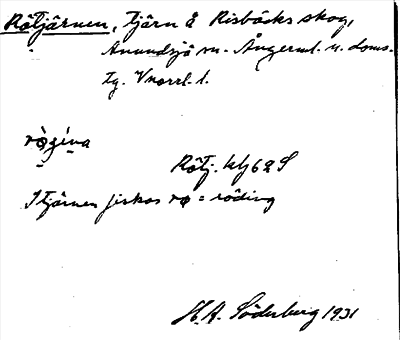 Rötjärnen, tjärn å Risbäcks skog,
Anundsjö sn. Ångerml. n. doms.
tg. Vnorrl. l.
Rötj. klj 62 S
I tjärnen fiskas rø = röding
H.A. Söderberg 1931